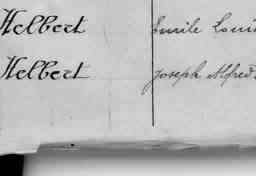 Helbert Emile Loui
Helbert Joseph Alfred